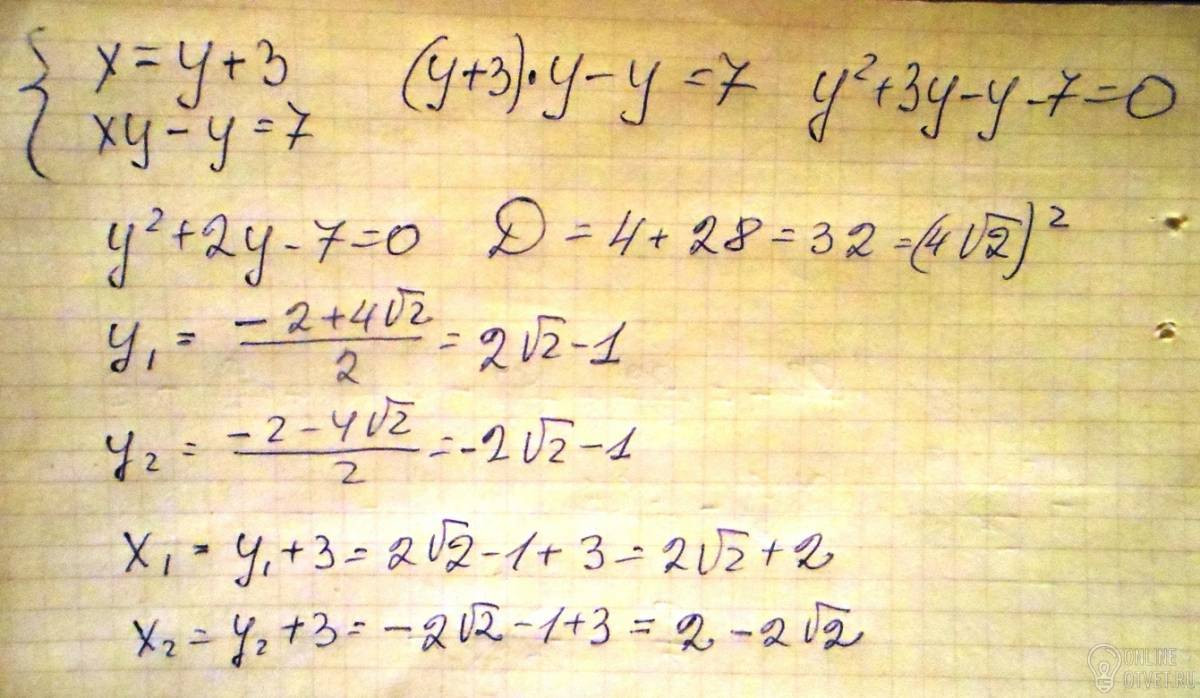 { x = y + 3   (y+3)·y − y = 7   y² + 3y − y − 7 = 0
xy − y = 7
y² + 2y − 7 = 0   D = 4 + 28 = 32 = (4√2)²
y₁ = (−2 + 4√2)/2 = 2√2 − 1
y₂ = (−2 − 4√2)/2 = −2√2 − 1
x₁ = y₁ + 3 = 2√2 − 1 + 3 = 2√2 + 2
x₂ = y₂ + 3 = −2√2 − 1 + 3 = 2 − 2√2
ONLINE
OTVET.RU